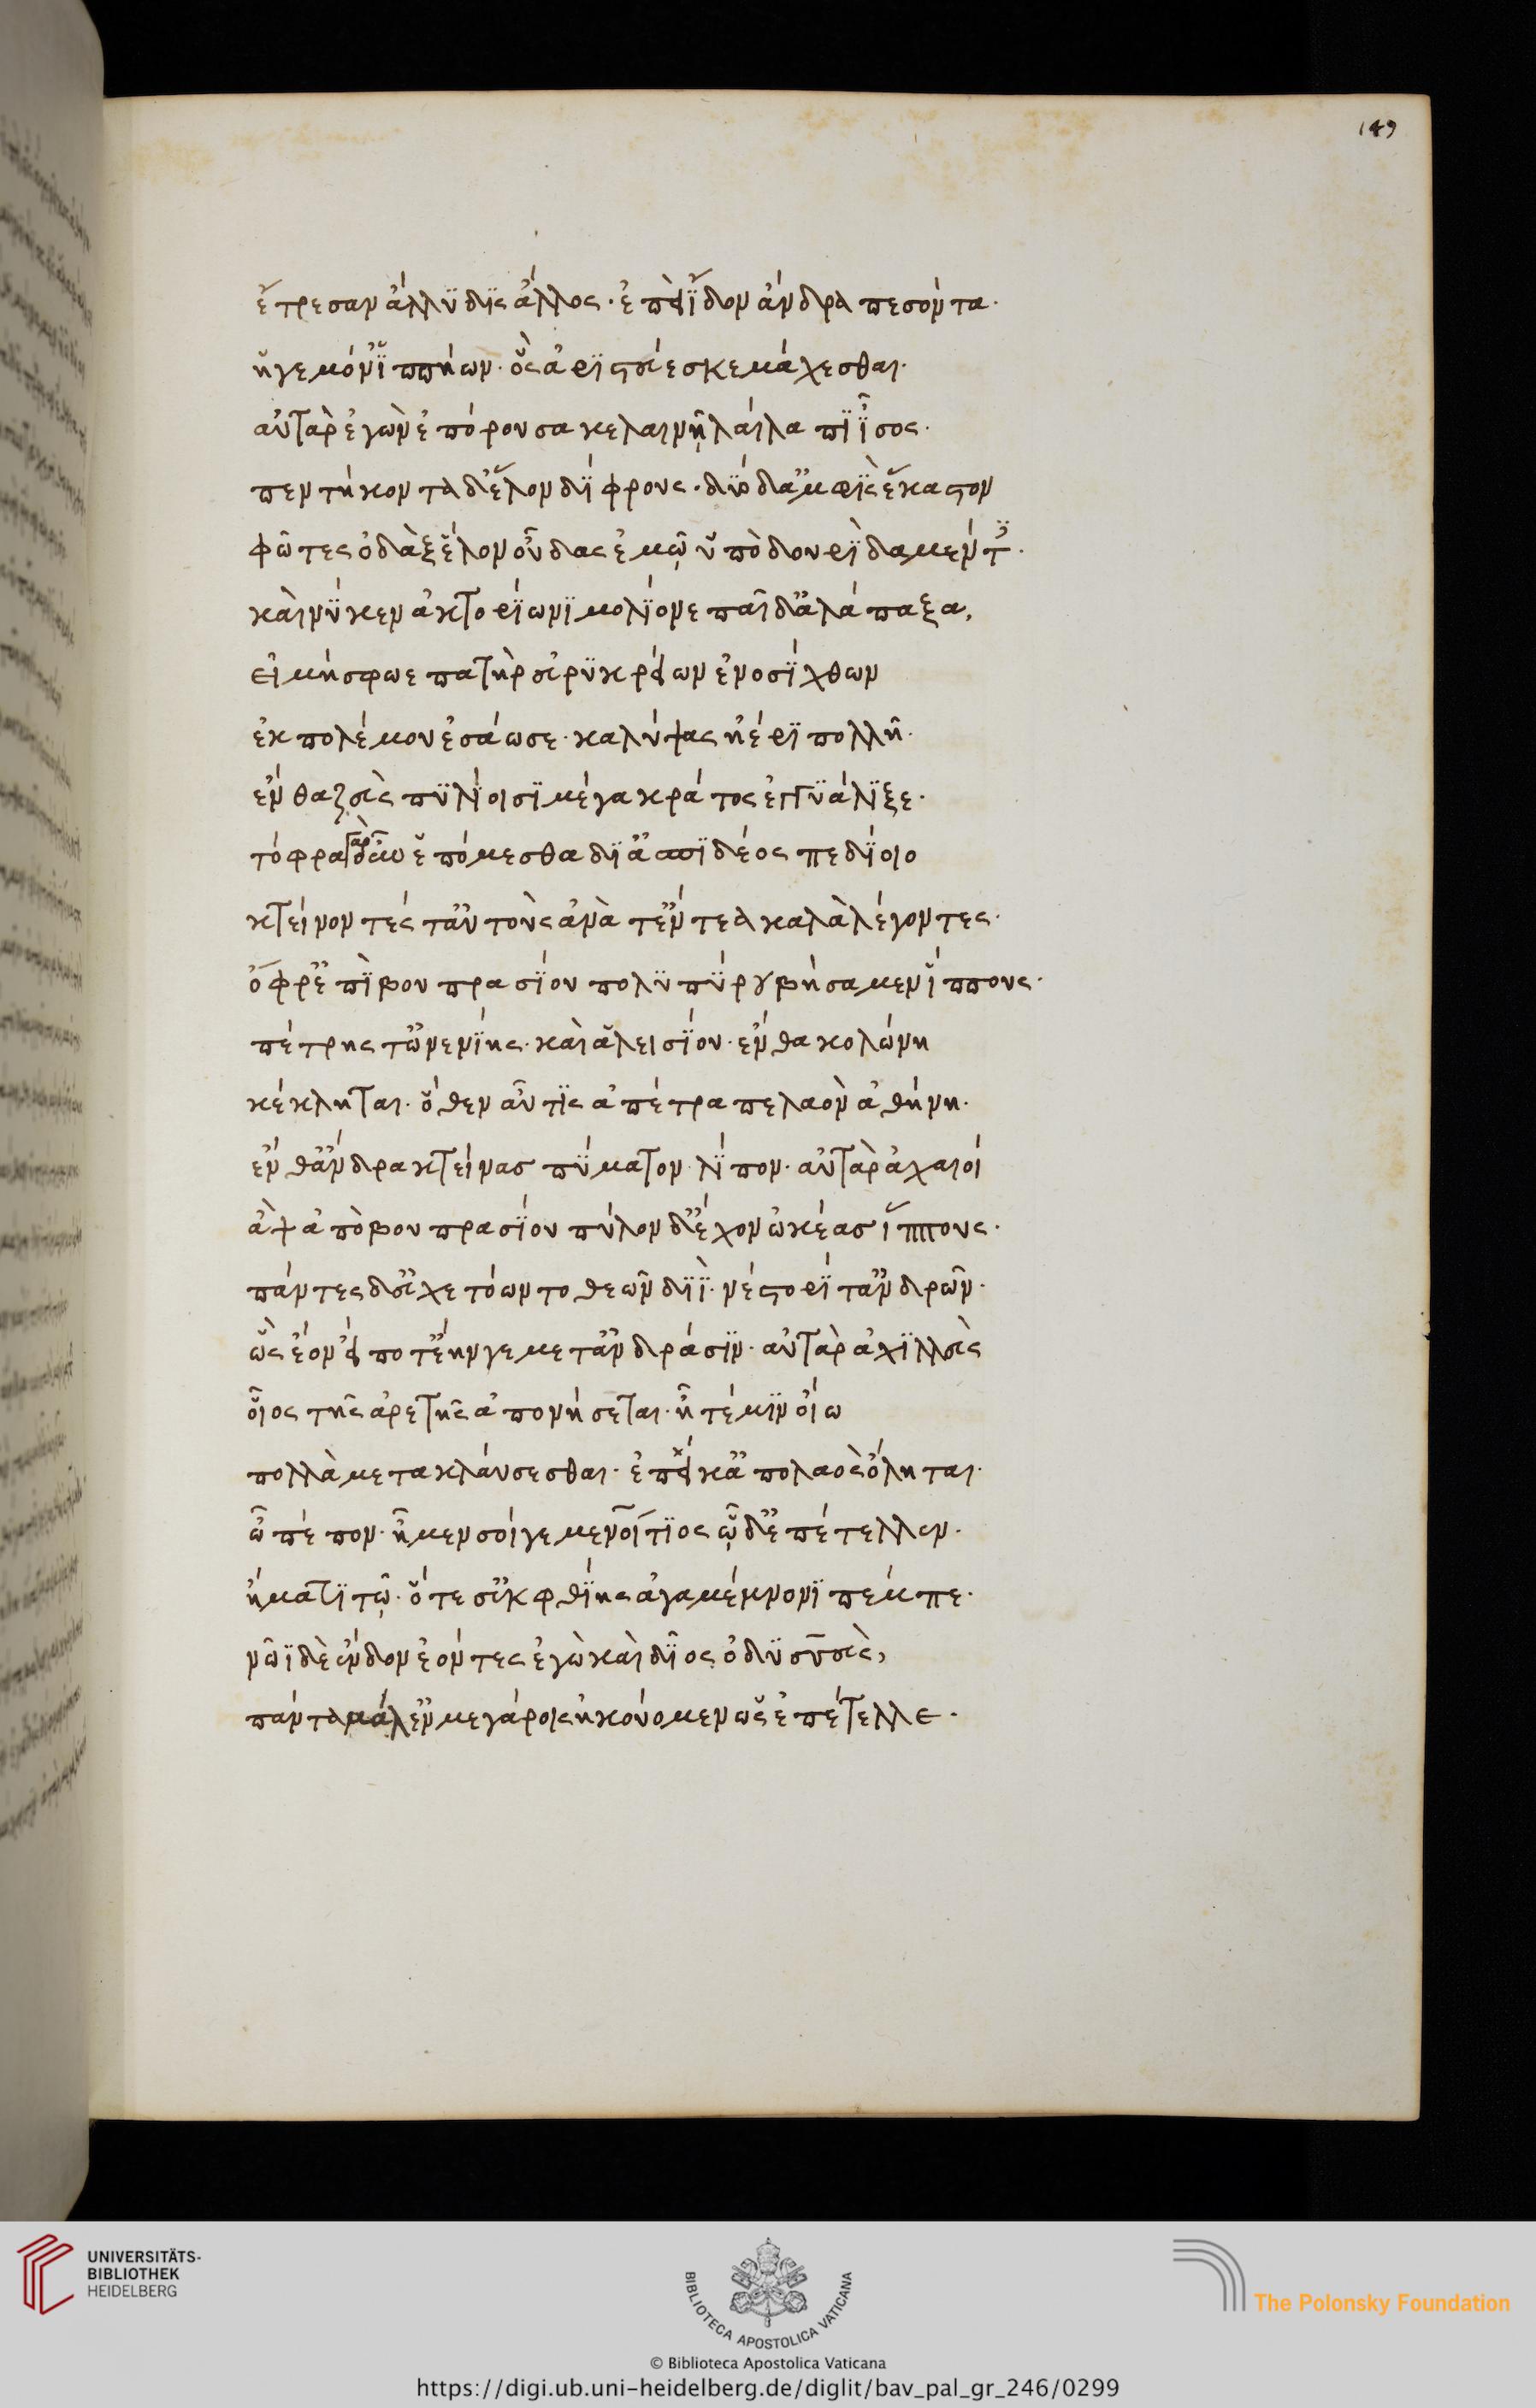 149
ἔτρεσαν ἄλλϋδϊς ἄλλος· ἐπεὶ ἴδον ἄνδρα πεσόντα·
ἡγεμόν' ἱππήων· ὃς ἀριστεύεσκε μάχεσθαι·
αὐτὰρ ἐγὼν ἐπόρουσα κελαινῇ λαίλαπι ἶσος·
πεντήκοντα δ' ἕλον δίφρους· δύο δ' ἀμφὶς ἕκαστον
φῶτες ὀδὰξ ἕλον οὖδας ἐμῷ ὑπὸ δουρὶ δαμέντες·
καὶ νύ κεν ἀκτορίωνι μολίονε παῖδ' ἀλάπαξα,
εἰ μή σφωε πατὴρ εὐρυκρείων ἐνοσίχθων
ἐκ πολέμου ἐσάωσε· καλύψας ἠέρι πολλῇ·
ἔνθα ζεὺς πυλίοισι μέγα κράτος ἐγγυάλιξε·
τόφρα γὰρ οὖν ἑπόμεσθα διὰ σπιδέος πεδίοιο
κτείνοντές τ' αὐτοὺς ἀνὰ τ' ἔντεα καλὰ λέγοντες·
ὄφρ' ἐπὶ βουπρασίου πολυπύρου βήσαμεν ἵππους·
πέτρης τ' ὠλενίης· καὶ ἀλεισίου· ἔνθα κολώνη
κέκληται· ὅθεν αὖτις ἀπέτραπε λαὸν ἀθήνη·
ἔνθ' ἄνδρα κτείνας πύματον λίπον· αὐτὰρ ἀχαιοί
ἂψ ἀπὸ βουπρασίου πύλονδ' ἔχον ὠκέας ἵππους·
πάντες δ' εὐχετόωντο θεῶν διῒ· νέστορί τ' ἀνδρῶν·
ὣς ἔον εἴ ποτ' ἔην γε μετ' ἀνδράσιν· αὐτὰρ ἀχιλλεὺς
οἶος τῆς ἀρετῆς ἀπονήσεται· ἦ τέ μιν οἴω
πολλὰ μετακλαύσεσθαι· ἐπεί κ' ἀπὸ λαὸς ὄληται·
ὦ πέπον· ἦ μεν σοί γε μενοίτιος ὧδ' ἐπέτελλεν·
ἤματι τῷ· ὅτε σ' ἐκ φθίης ἀγαμέμνονι πέμπε·
νῶϊ δὲ ἔνδον ἐόντες ἐγὼ καὶ δῖος ὀδυσσεὺς,
πάντα μάλ' ἐν μεγάροις ἠκούομεν ὡς ἐπέτελλε·
UNIVERSITÄTS-
BIBLIOTHEK
HEIDELBERG
BIBLIOTECA APOSTOLICA VATICANA
The Polonsky Foundation
© Biblioteca Apostolica Vaticana
https://digi.ub.uni-heidelberg.de/diglit/bav_pal_gr_246/0299